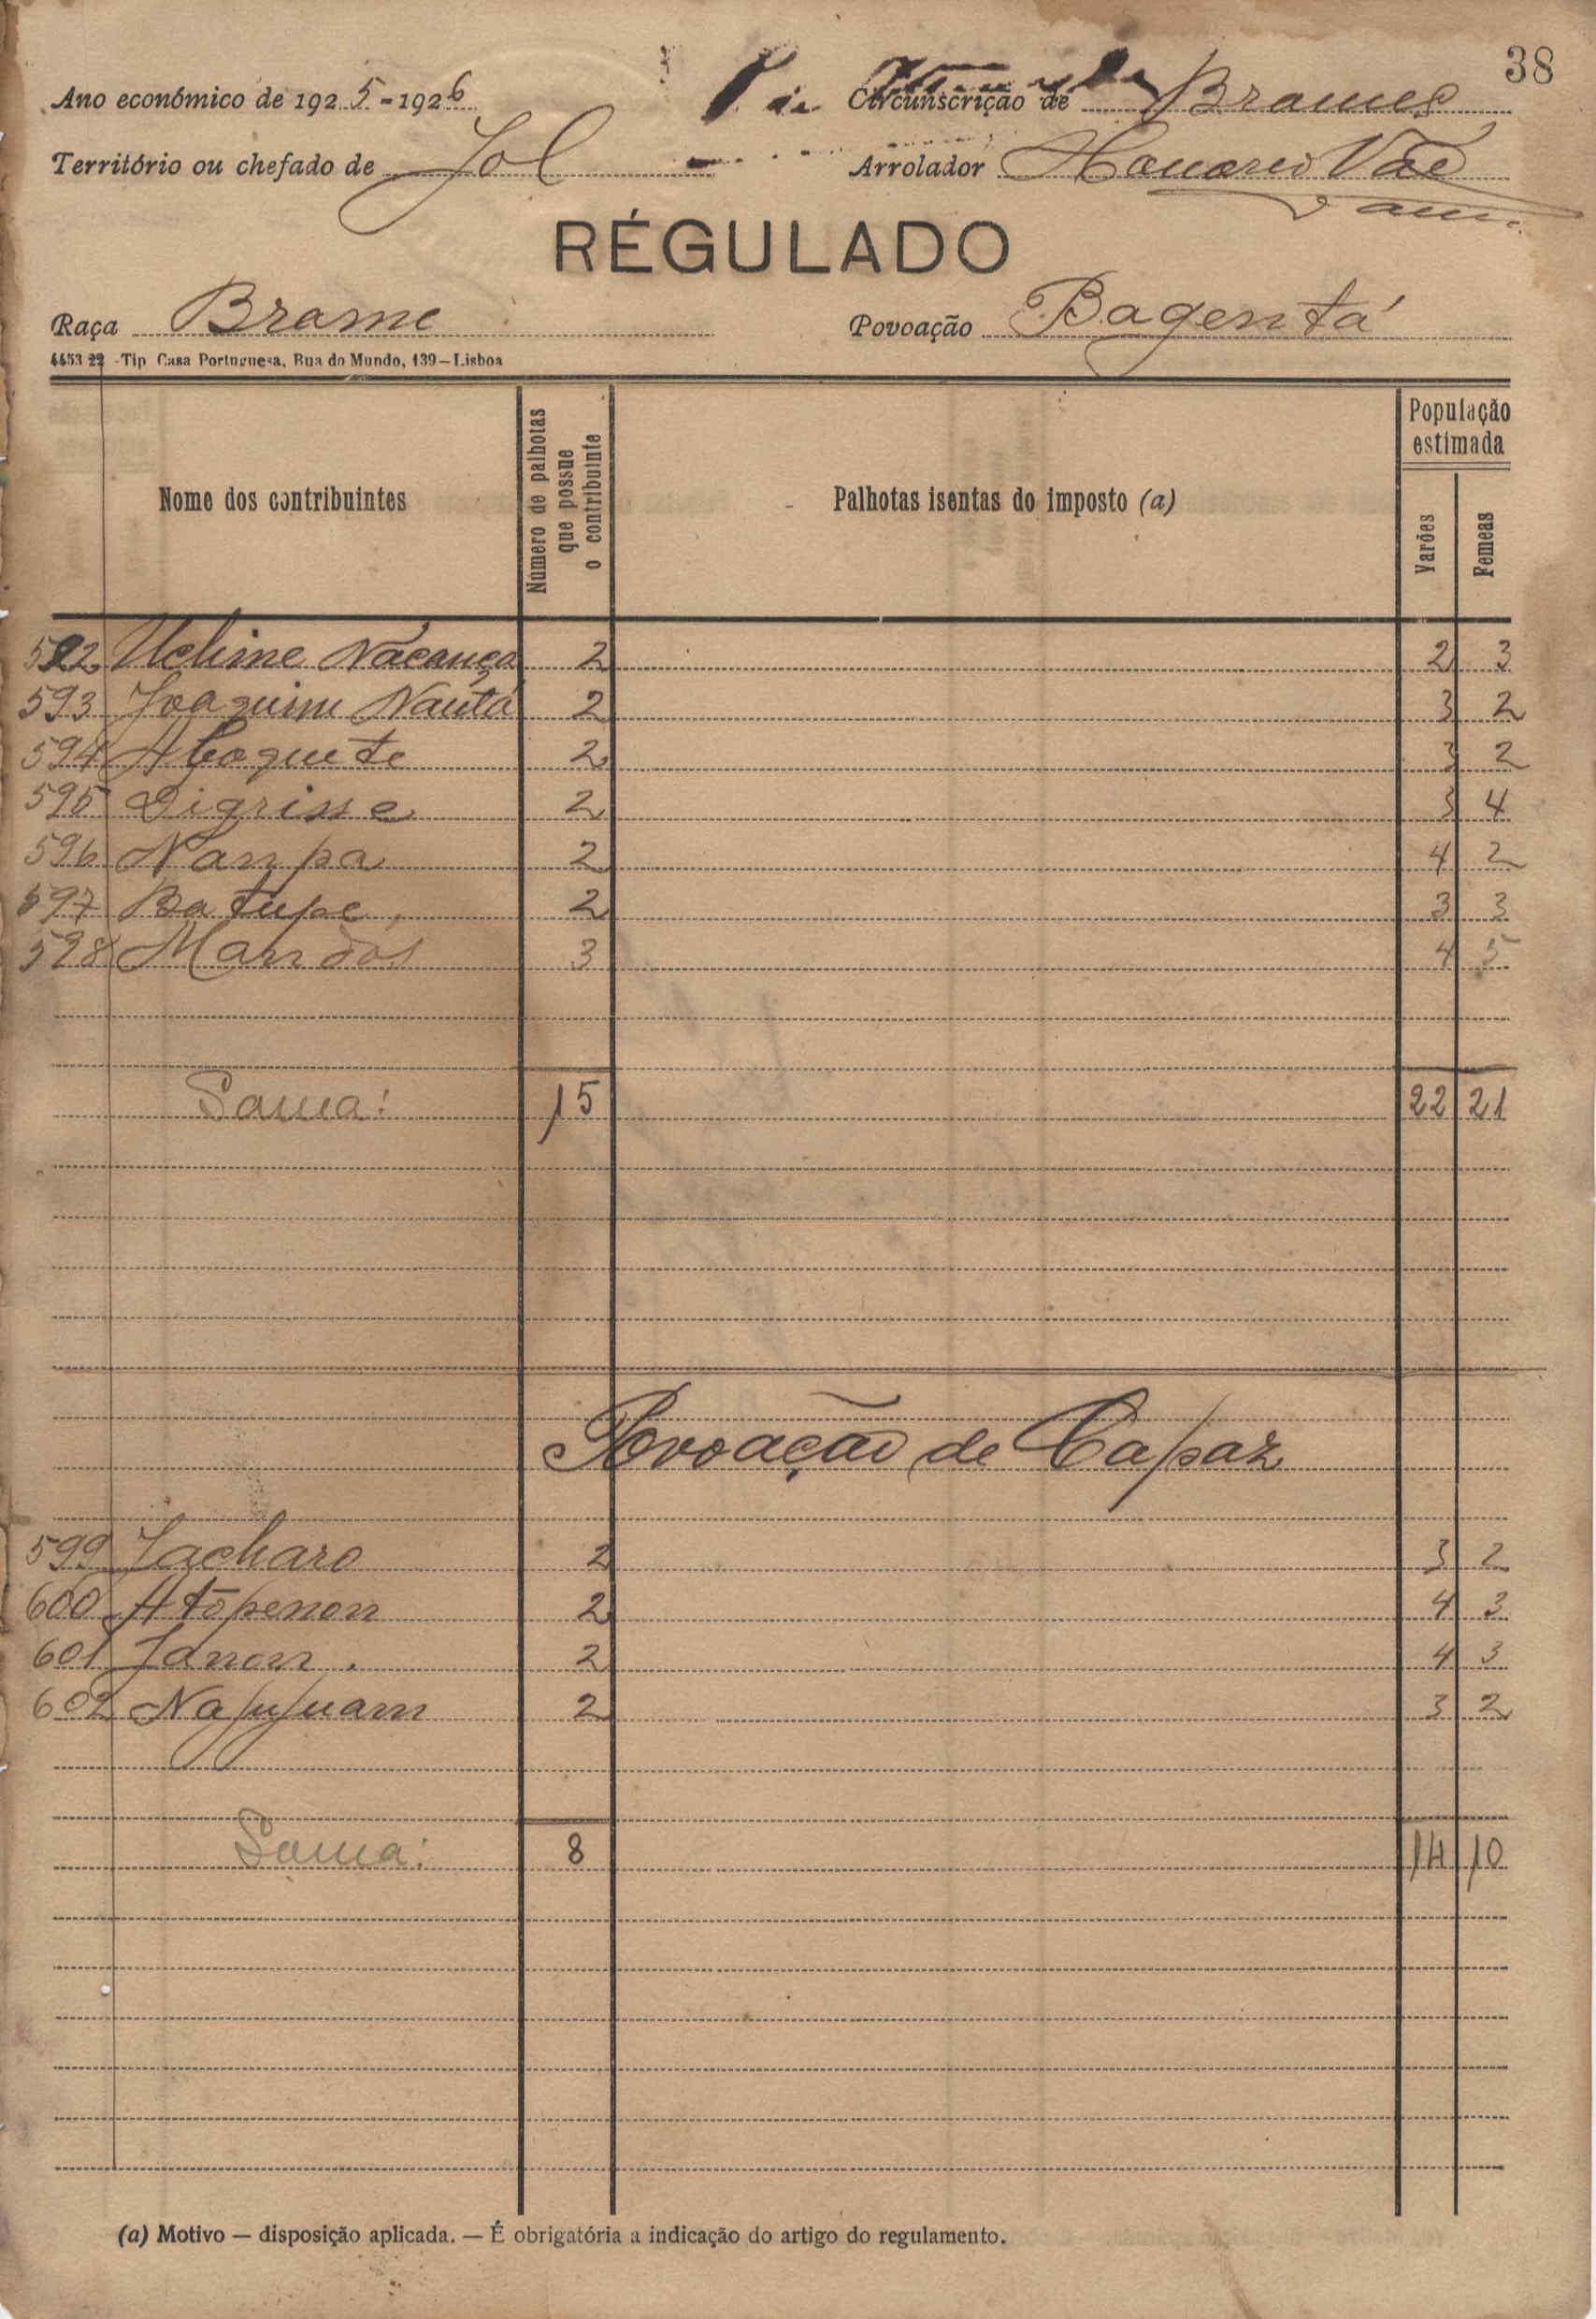 38
Ano económico de 1925-1926 Circunscrição de Brames
Território ou chefado de Jol Arrolador
RÉGULADO
Raça Brame Povoação Bagentá
4453 22 - Tip Casa Portuguesa, Rua do Mundo, 139—Lisboa
Nome dos contribuintes Número de palhotas que possue o contribuinte Palhotas isentas do imposto (a) População estimada Varões Femeas
592 Uclime Nácança 2 2 3
593 Joaquim Nautá 2 3 2
594 Aboquete 2 3 2
595 Digrisse 2 3 4
596 Nampa 2 4 2
597 Batupe 2 3 3
598 Mandos 3 4 5
Soma: 15 22 21
Povoação de Capaz
599 Jacharo 2 3 2
600 Atópenon 2 4 3
601 Janon 2 4 3
602 Najujuam 2 3 2
Soma: 8 14 10
(a) Motivo — disposição aplicada. — É obrigatória a indicação do artigo do regulamento.